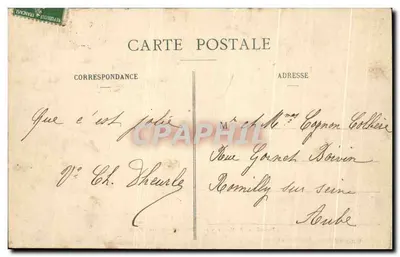 CARTE POSTALE
CORRESPONDANCE
ADRESSE
Que c'est jolie
Vve Ch. Dheurle
Mr et Mmes Cognon Colliere
Rue Gornet Boivin
Romilly sur seine
Aube
CPAPHIL